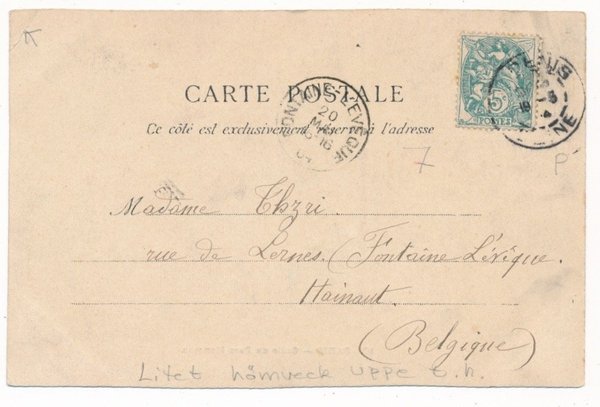 CARTE POSTALE
Ce côté est exclusivement réservé à l'adresse
FONTAINE-L'EVEQUE
20
MAI
16
04
5
POSTES
7
P
Madame Thzri.
rue de Lernes. (Fontaine-L'évêque.
Hainaut.
(Belgique)
Litet hörnveck uppe t.h.